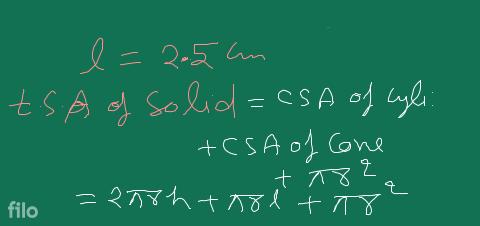 l = 2.5 cm
t.S.A of Solid = CSA of cyli.
+ CSA of Cone
+ πr²
= 2πrh + πrl + πr²
filo